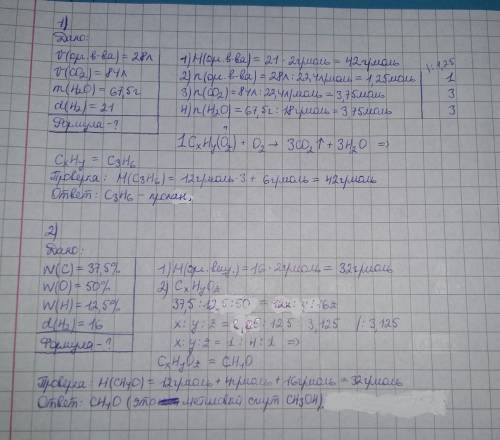 1)
Дано:
V(ор. в-ва) = 28л
V(CO₂) = 84л
m(H₂O) = 67,5г
d(H₂) = 21
Формула - ?
1) M(ор. в-ва) = 21 · 2г/моль = 42г/моль
2) n(ор. в-ва) = 28л : 22,4л/моль = 1,25моль 1
3) n(CO₂) = 84л : 22,4л/моль = 3,75моль 3
4) n(H₂O) = 67,5г : 18г/моль = 3,75моль 3
/:1,25
?
1 CxHy(O₂) + O₂ → 3CO₂↑ + 3H₂O ⇒
CxHy = C₃H₆
Проверка: M(C₃H₆) = 12г/моль · 3 + 6г/моль = 42г/моль
Ответ: C₃H₆ -
2)
Дано:
W(C) = 37,5%
W(O) = 50%
W(H) = 12,5%
d(H₂) = 16
Формула - ?
1) M(ор. вещ.) = 16 · 2г/моль = 32г/моль
2) CxHyOz
37,5 : 12,5 : 50 = 12x : y : 16z
x : y : z = : 12,5 3,125 /: 3,125
x : y : z = 1 : 4 : 1 ⇒
CxHyOz = CH₄O
Проверка: M(CH₄O) = 12г/моль + 4г/моль + 16г/моль = 32г/моль
Ответ: CH₄O (это метиловый спирт CH₃OH)